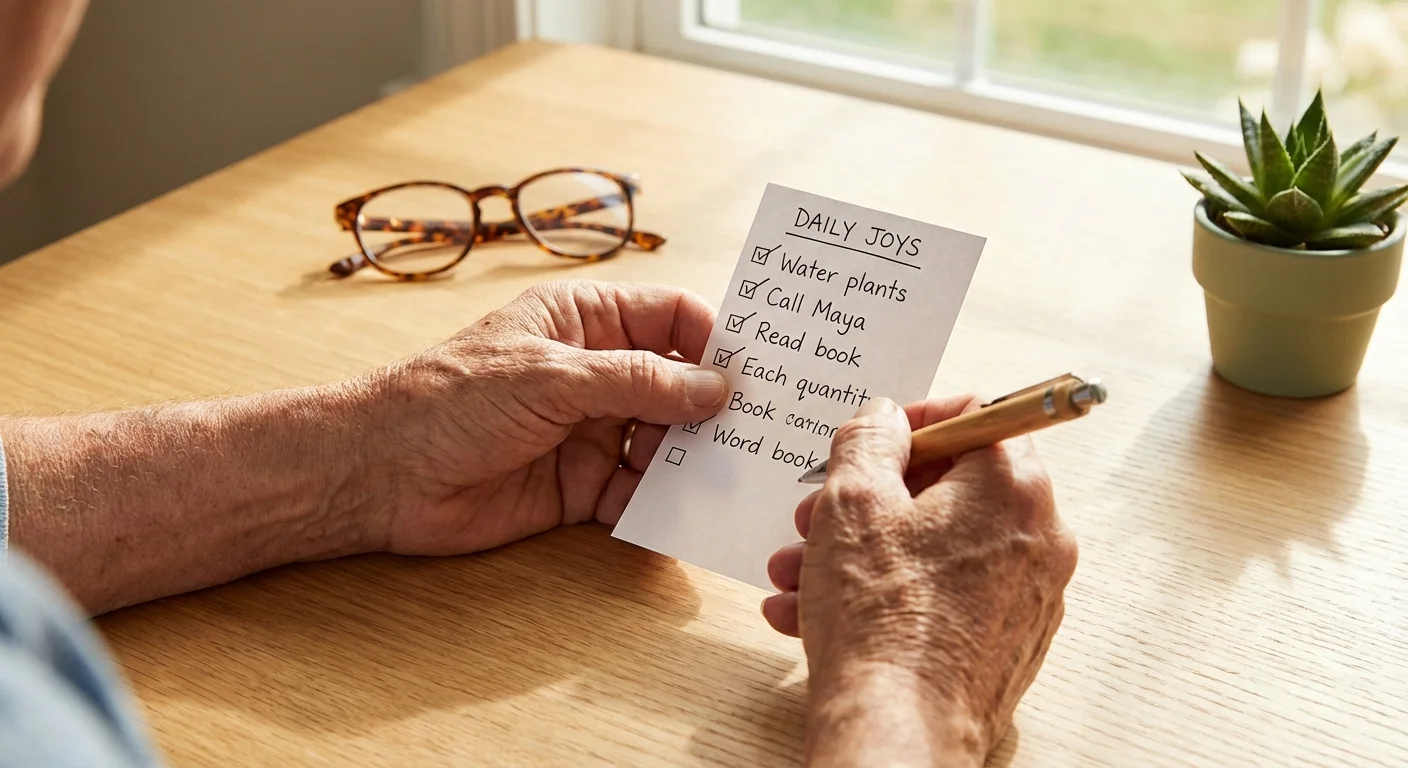 DAILY JOYS
Water plants
Call Maya
Read book
Each
Book
Word book